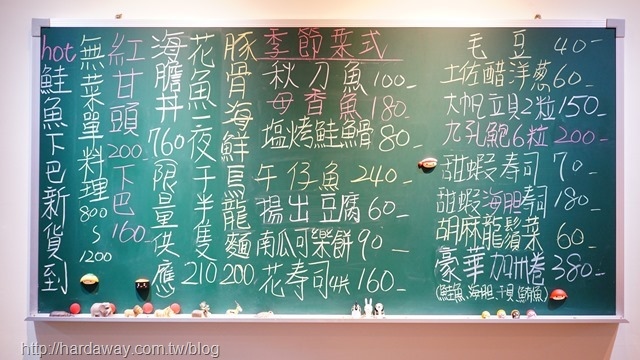 hot 鮭魚下巴新貨到
無菜單料理 800~1200
紅甘頭 200 下巴 160
海膽丼 760 (限量供應
花魚一夜干半隻 210
豚骨海鮮烏龍麵 200
季節菜式
秋刀魚 100
母香魚 180
塩烤鮭鮪骨 80
午仔魚 240
揚出豆腐 60
南瓜可樂餅 90
花壽司 4片 160
毛豆 40
土佐醋洋葱 60
大帆立貝2粒 150
九孔鮑6粒 200
甜蝦寿司 70
甜蝦海胆寿司 180
胡麻龍鬚菜 60
豪華加州捲 380
(鮭魚.海胆.干貝.鮪魚)
http://hardaway.com.tw/blog